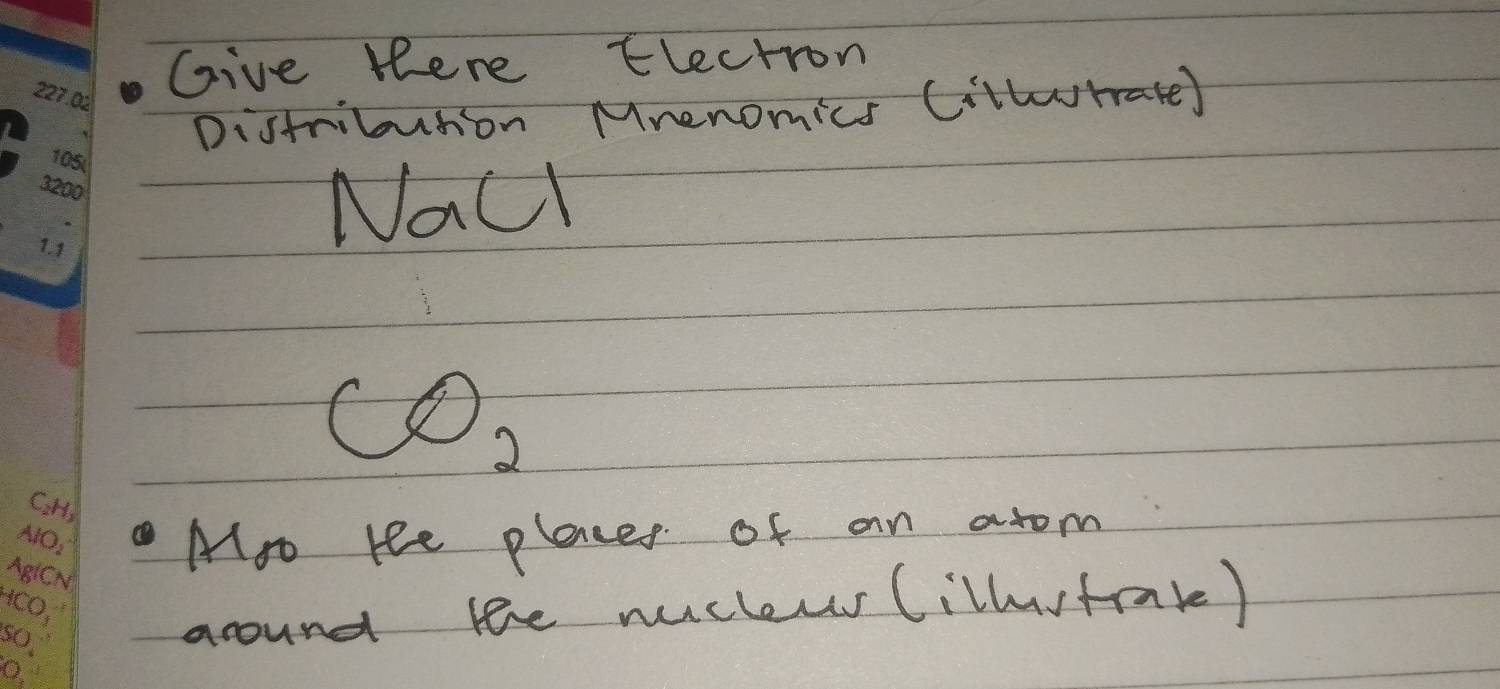 227.02
105
3200
1.1
• Give there Electron
Distribution Mnenomics (illustrate)
NaCl
CO₂
• Also the places of an atom
around the nucleus (illustrate)
AlO₂
Ag(CN
HCO₃
SO₄